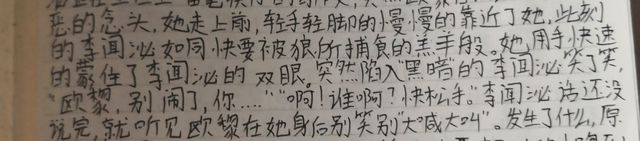 恶的念头，她走上前，轻手轻脚的慢慢的靠近了她，此刻
的李闻泌如同快要被狼所捕食的羔羊般。她用手快速
的蒙住了李闻泌的双眼。突然陷入"黑暗"的李闻泌笑了笑，
"欧黎，别闹了，你……""啊！谁啊？快松手。"李闻泌话还没
说完，就听见欧黎在她身后别笑别"大喊大叫"。发生了什么，原